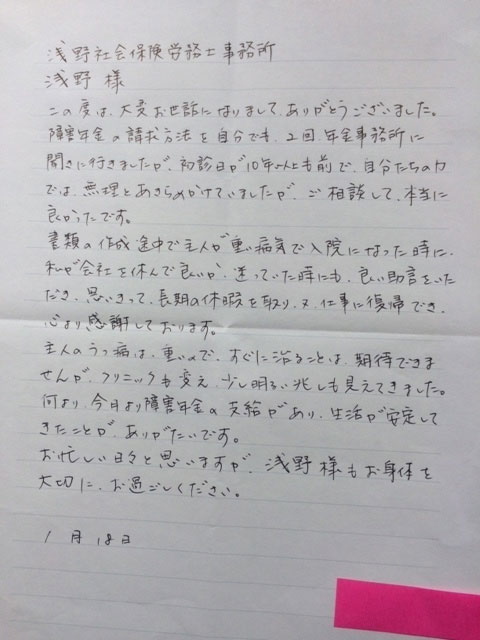 浅野社会保険労務士事務所
浅野 様
この度は、大変お世話になりまして、ありがとうございました。
障害年金の請求方法を自分でも、2回、年金事務所に
聞きに行きましたが、初診日が10年以上も前で、自分たちの力
では、無理とあきらめかけていましたが、ご相談して、本当に
良かったです。
書類の作成途中で主人が重い病気で入院になった時に、
私が会社を休んで良いか、迷っていた時にも、良い助言をいた
だき、思いきって、長期の休暇を取り、又、仕事に復帰でき、
心より感謝しております。
主人のうつ病は、重いので、すぐに治ることは、期待できま
せんが、クリニックも変え、少し明るい兆しも見えてきました。
何より、今月より障害年金の支給があり、生活が安定して
きたことが、ありがたいです。
お忙しい日々と思いますが、浅野様もお身体を
大切に、お過ごしください。
1月18日